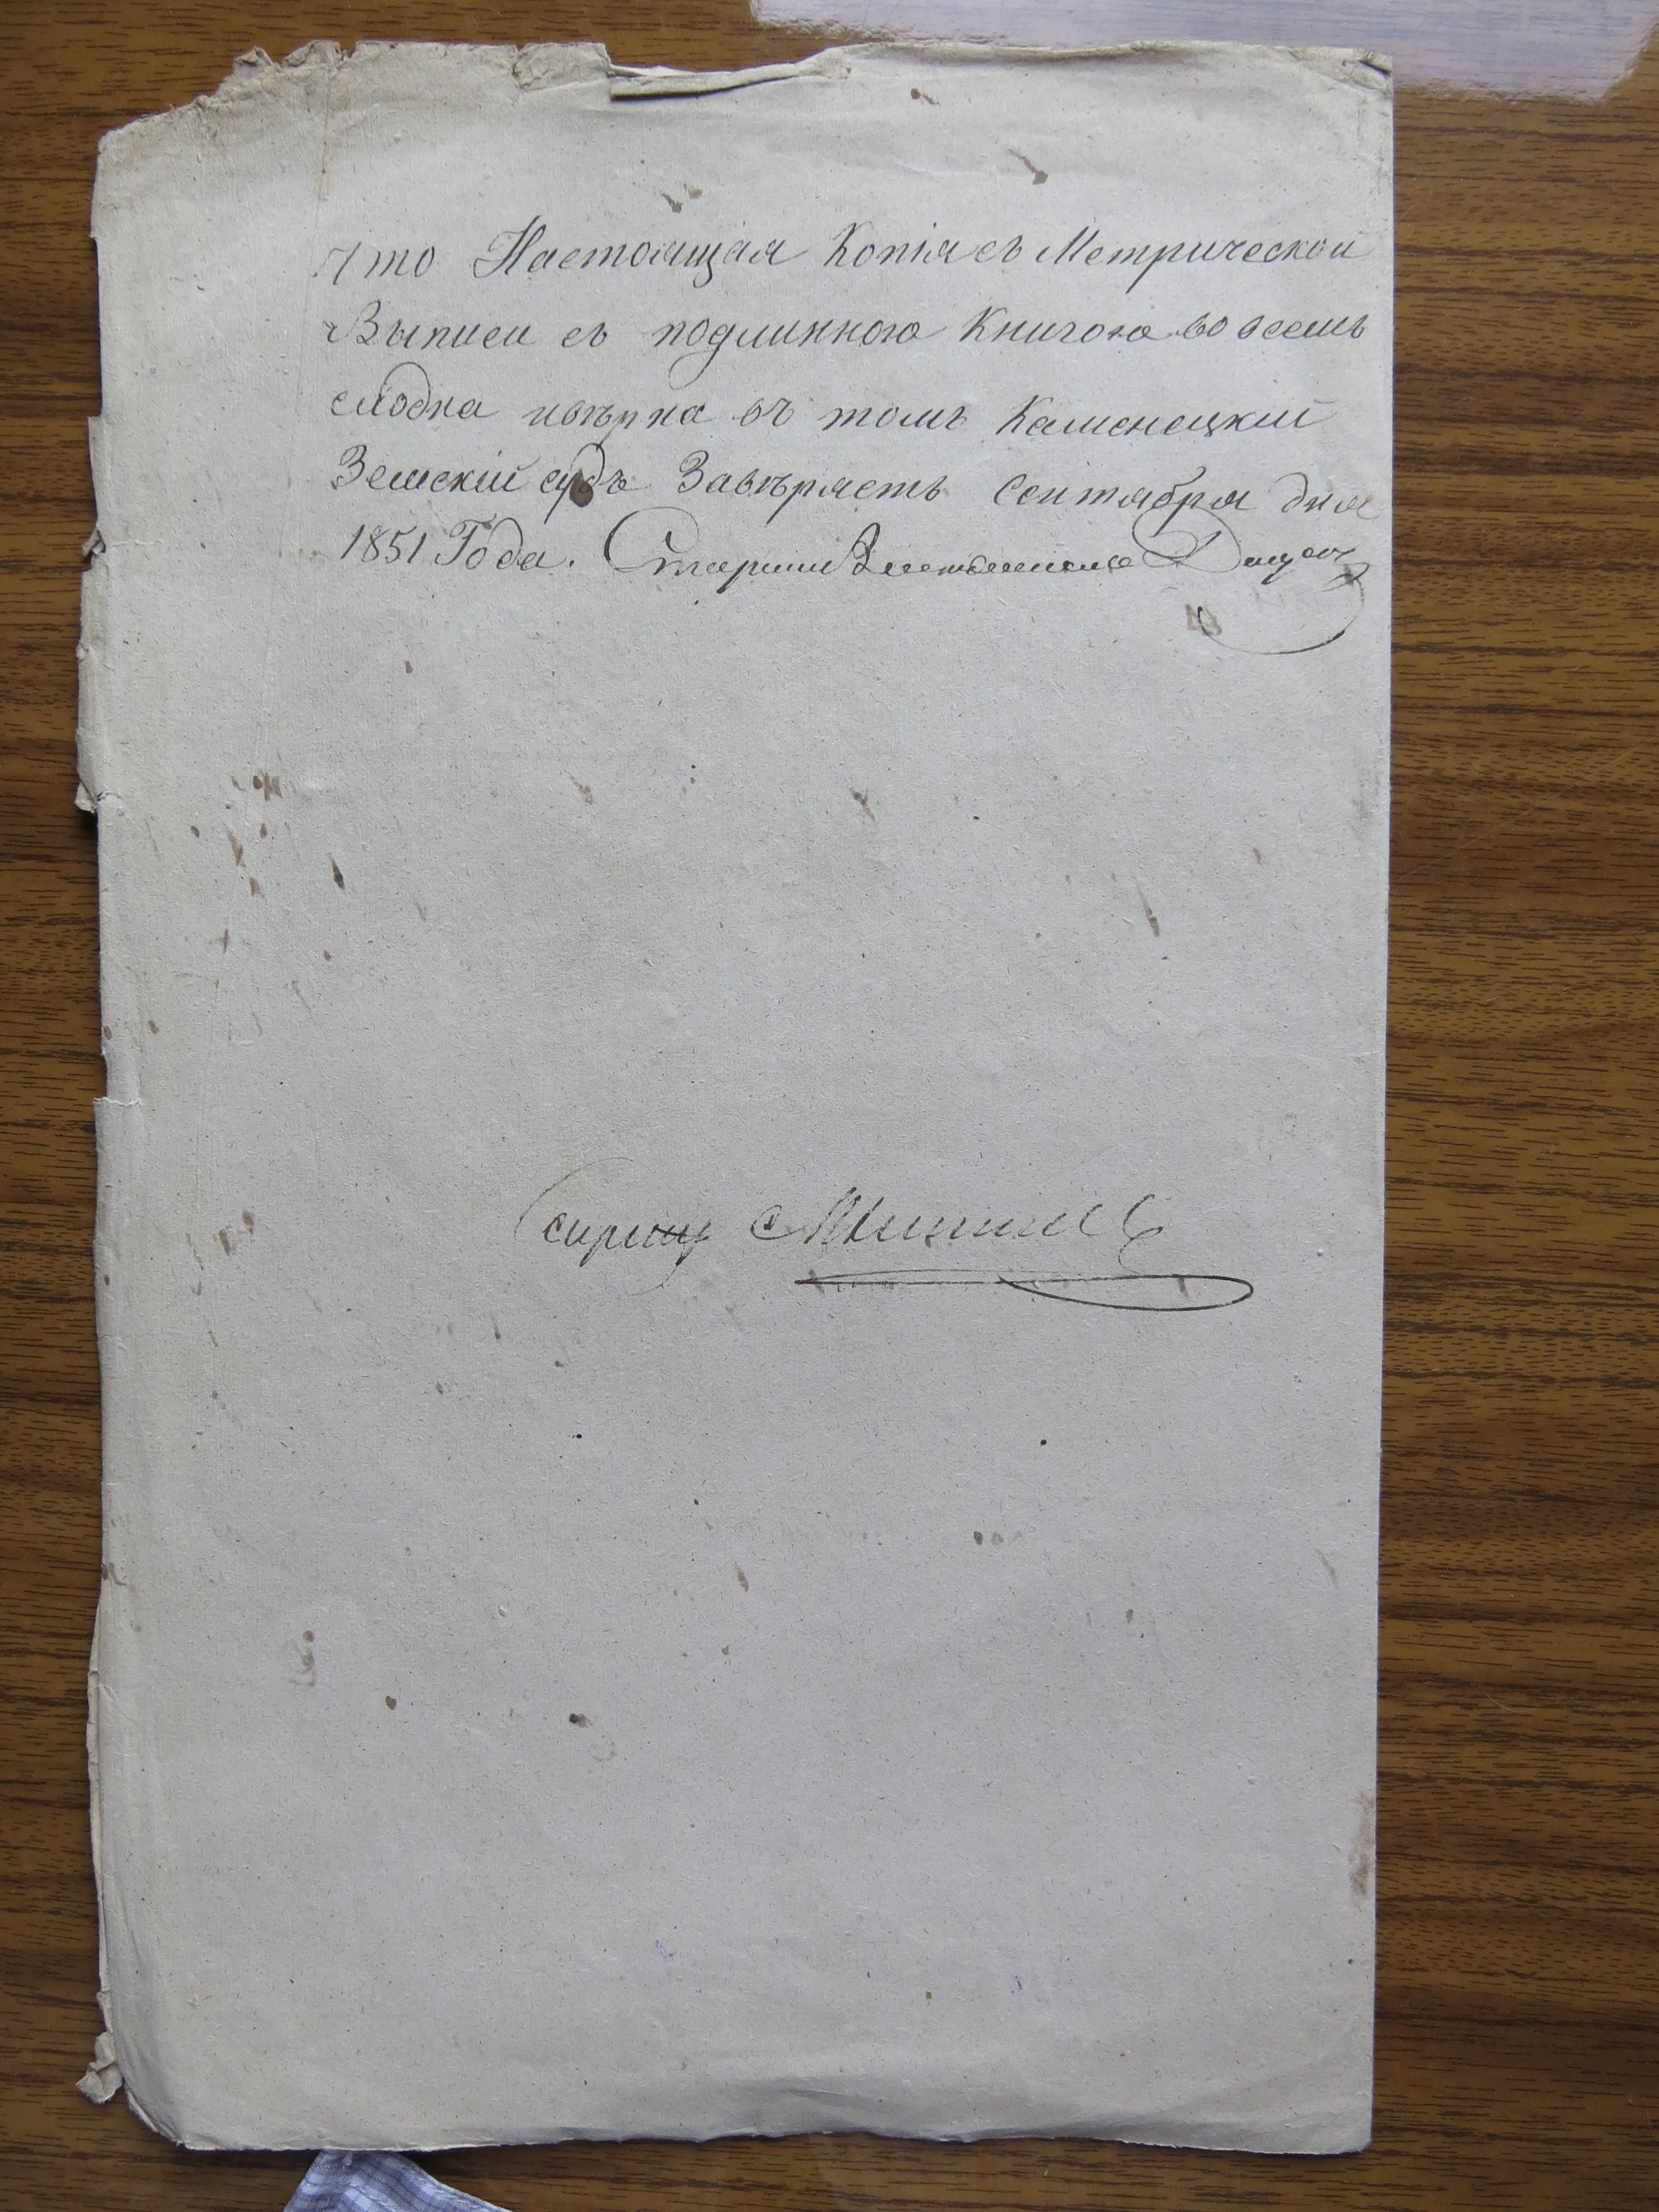 Что Настоящая Копія съ Метрической
Выписи съ подлинною Книгою во всемъ
сходна и вѣрна въ томъ Каменецкій
Земскій судъ Завѣряетъ Сентября дня
1851 Года. Старшій